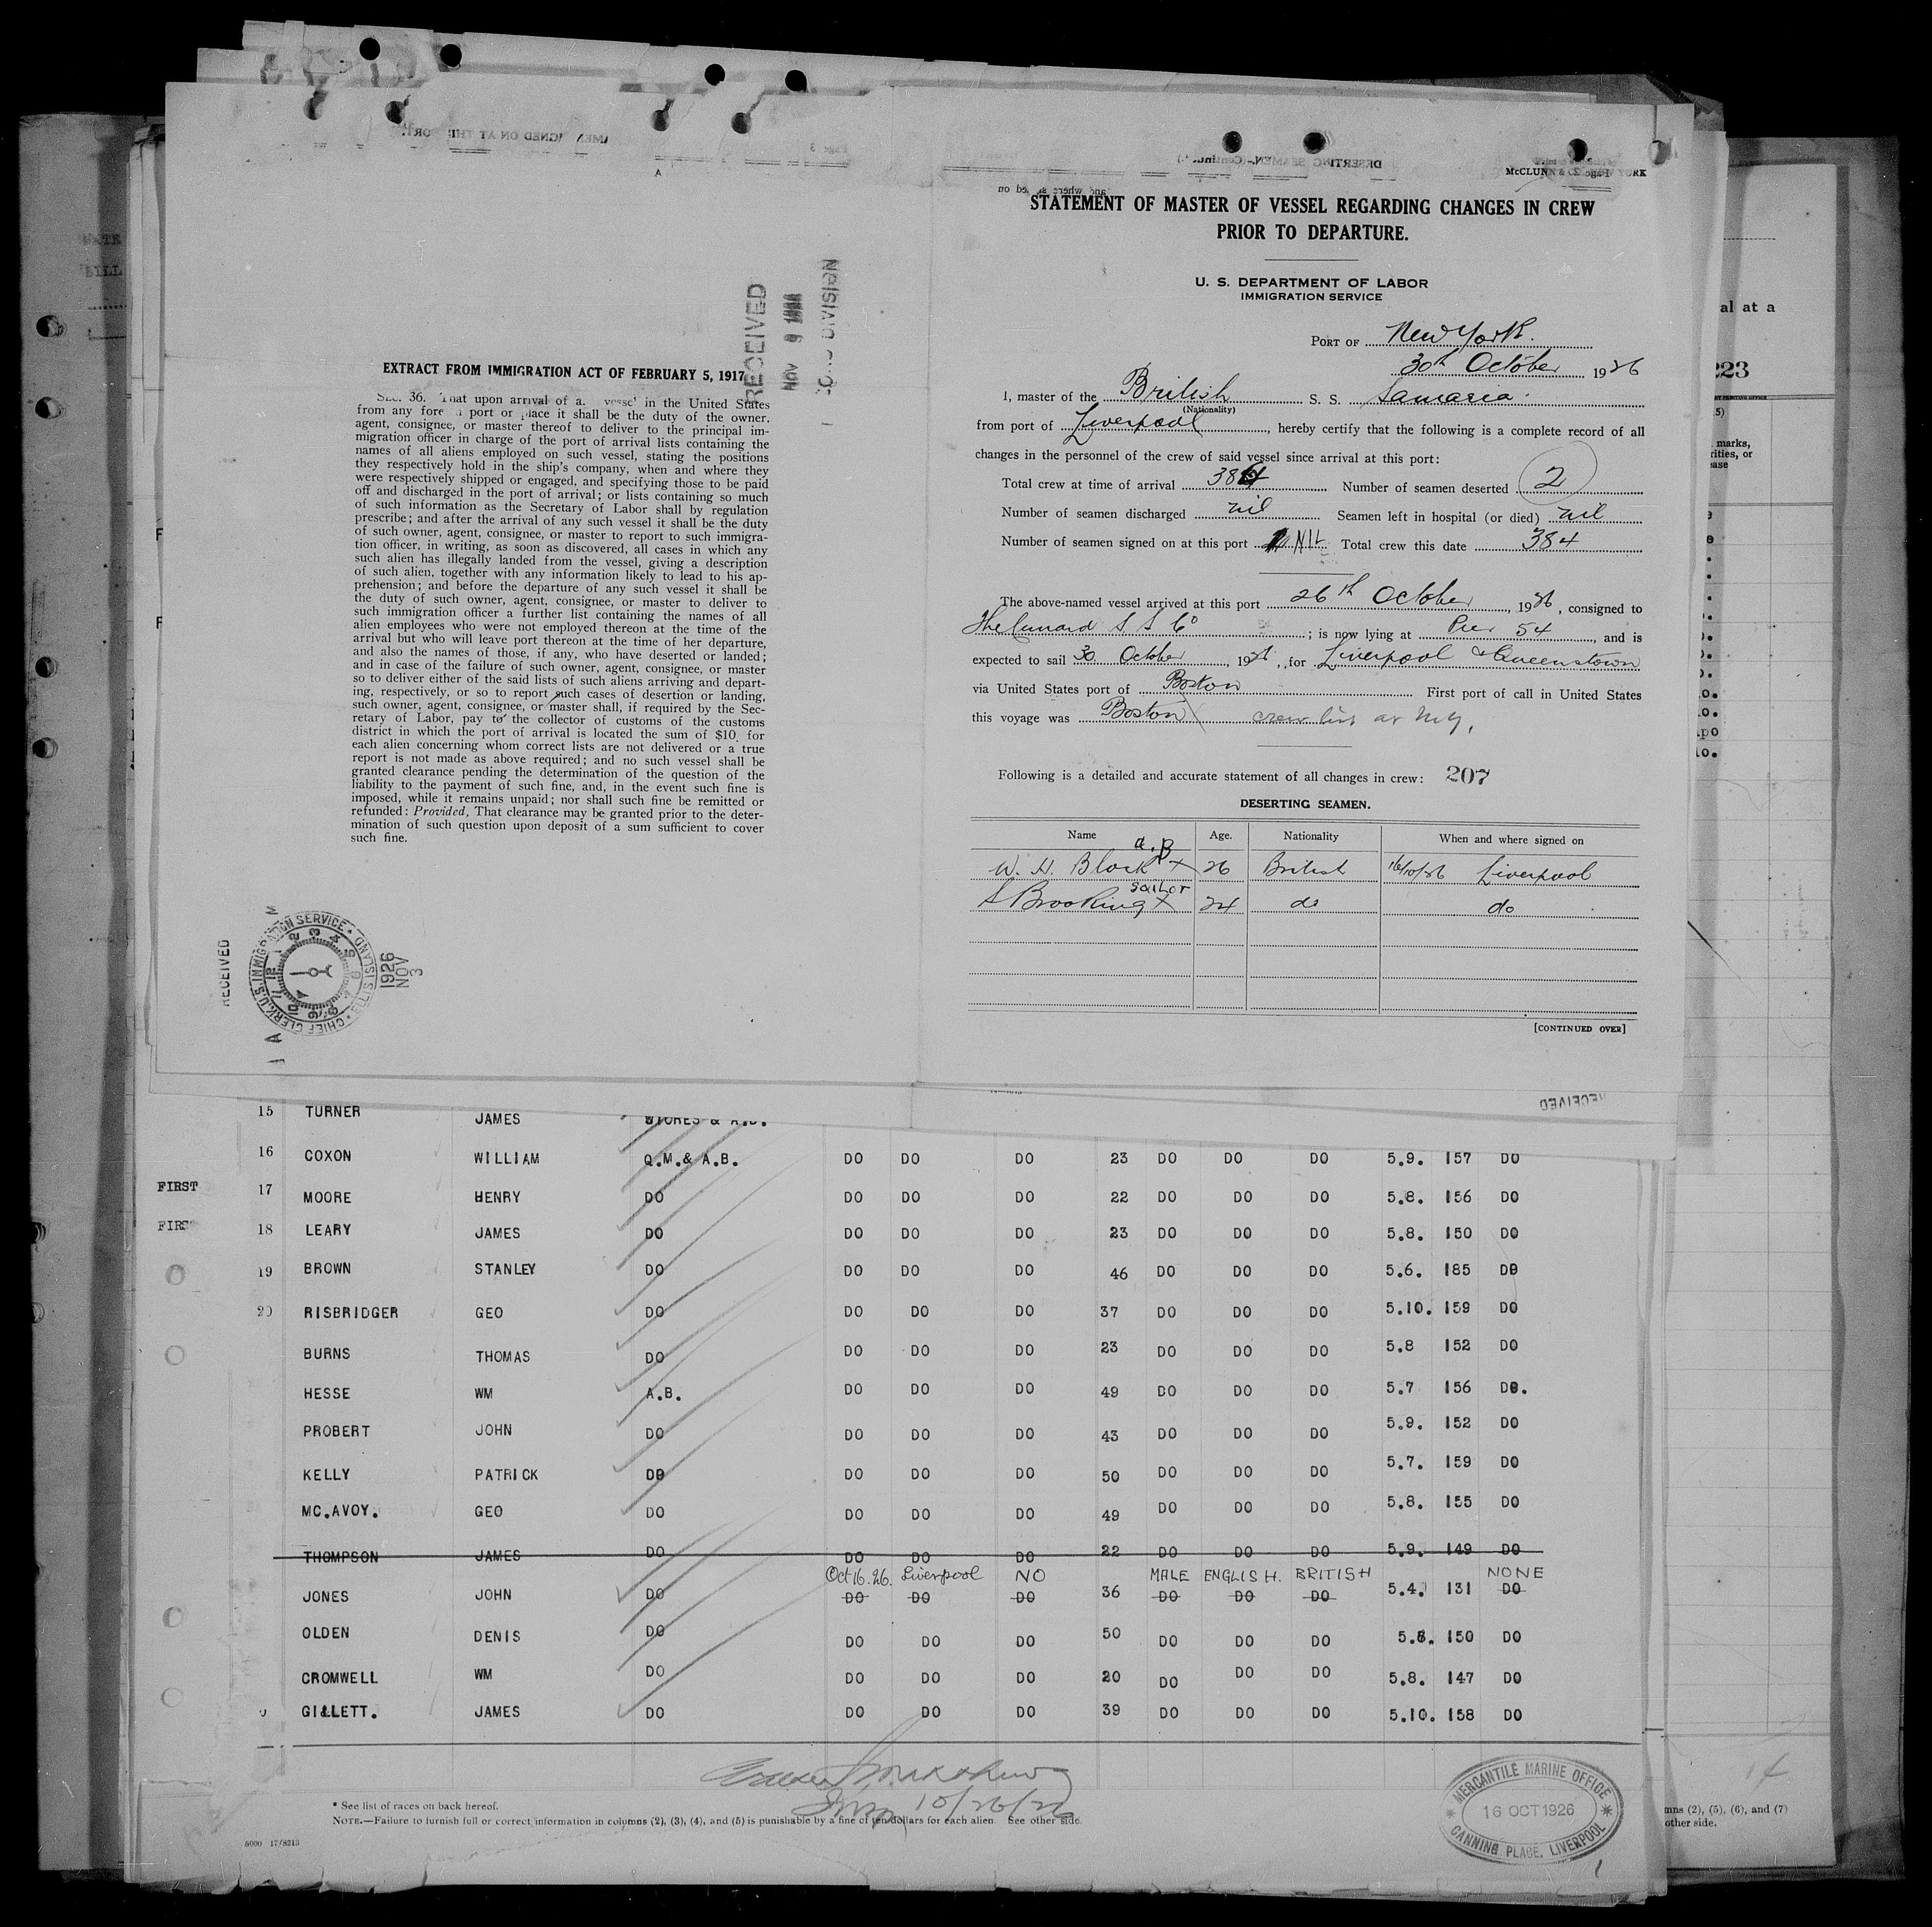 EXTRACT FROM IMMIGRATION ACT OF FEBRUARY 5, 1917
SEC. 36. That upon arrival of a vessel in the United States
from any port or place it shall be the duty of the owner,
agent, consignee, or master thereof to deliver to the principal im-
migration officer in charge of the port of arrival lists containing the
names of all aliens employed on such vessel, stating the positions
they respectively hold in the ship's company, when and where they
were respectively shipped or engaged, and specifying those to be paid
off and discharged in the port of arrival; or lists containing so much
of such information as the Secretary of Labor shall by regulation
prescribe; and after the arrival of any such vessel it shall be the duty
of such owner, agent, consignee, or master to report to such immigra-
tion officer, in writing, as soon as discovered, all cases in which any
such alien has illegally landed from the vessel, giving a description
of such alien, together with any information likely to lead to his ap-
prehension; and before the departure of any such vessel it shall be
the duty of such owner, agent, consignee, or master to deliver to
such immigration officer a further list containing the names of all
alien employees who were not employed thereon at the time of the
arrival but who will leave port thereon at the time of her departure,
and also the names of those, if any, who have deserted or landed;
and in case of the failure of such owner, agent, consignee, or master
so to deliver either of the said lists of such aliens arriving and depart-
ing, respectively, or so to report such cases of desertion or landing,
such owner, agent, consignee, or master shall, if required by the Sec-
retary of Labor, pay to the collector of customs of the customs
district in which the port of arrival is located the sum of $10 for
each alien concerning whom correct lists are not delivered or a true
report is not made as above required; and no such vessel shall be
granted clearance pending the determination of the question of the
liability to the payment of such fine, and, in the event such fine is
imposed, while it remains unpaid; nor shall such fine be remitted or
refunded: Provided, That clearance may be granted prior to the deter-
mination of such question upon deposit of a sum sufficient to cover
such fine.
RECEIVED
NOV 9
DIVISION
RECEIVED
CHIEF CLERK, U.S. IMMIGRATION SERVICE ELLIS ISLAND
1926
NOV
3
STATEMENT OF MASTER OF VESSEL REGARDING CHANGES IN CREW
PRIOR TO DEPARTURE.
U. S. DEPARTMENT OF LABOR
IMMIGRATION SERVICE
PORT OF New York.
30th October 1926
I, master of the British S. S. Samaria.
(Nationality)
from port of Liverpool, hereby certify that the following is a complete record of all
changes in the personnel of the crew of said vessel since arrival at this port:
Total crew at time of arrival Number of seamen deserted 2
Number of seamen discharged nil Seamen left in hospital (or died) nil
Number of seamen signed on at this port NIL Total crew this date 384
The above-named vessel arrived at this port 26th October, 1926, consigned to
The Cunard S S Co; is now lying at Pier 54, and is
expected to sail 30 October, 1926, for Liverpool & Queenstown
via United States port of Boston First port of call in United States
this voyage was Boston crew list at N.Y.
Following is a detailed and accurate statement of all changes in crew: 207
DESERTING SEAMEN.
Name Age. Nationality When and where signed on
W. H. Block A.B 26 British 16/10/26 Liverpool
S Brooking sailor 24 do do
[CONTINUED OVER]
15 TURNER JAMES STORES & A.B.
16 COXON WILLIAM Q.M.& A.B. DO DO DO 23 DO DO DO 5.9. 157 DO
FIRST 17 MOORE HENRY DO DO DO DO 22 DO DO DO 5.8. 156 DO
FIRST 18 LEARY JAMES DO DO DO DO 23 DO DO DO 5.8. 150 DO
19 BROWN STANLEY DO DO DO DO 46 DO DO DO 5.6. 185 DO
20 RISBRIDGER GEO DO DO DO DO 37 DO DO DO 5.10. 159 DO
BURNS THOMAS DO DO DO DO 23 DO DO DO 5.8 152 DO
HESSE WM A.B. DO DO DO 49 DO DO DO 5.7 156 DO.
PROBERT JOHN DO DO DO DO 43 DO DO DO 5.9. 152 DO
KELLY PATRICK DO DO DO DO 50 DO DO DO 5.7. 159 DO
MC.AVOY. GEO DO DO DO DO 49 DO DO DO 5.8. 155 DO
THOMPSON JAMES DO DO DO DO 22 DO DO DO 5.9. 149 DO
Oct 16.26. Liverpool NO MALE ENGLISH. BRITISH NONE
JONES JOHN DO DO DO DO 36 DO DO DO 5.4. 131 DO
OLDEN DENIS DO DO DO DO 50 DO DO DO 5.8. 150 DO
CROMWELL WM DO DO DO DO 20 DO DO DO 5.8. 147 DO
GILLETT. JAMES DO DO DO DO 39 DO DO DO 5.10. 158 DO
10/26/26
* See list of races on back hereof.
NOTE.—Failure to furnish full or correct information in columns (2), (3), (4), and (5) is punishable by a fine of ten dollars for each alien. See other side.
5000 17/8213
MERCANTILE MARINE OFFICE
16 OCT 1926
CANNING PLACE, LIVERPOOL
al at a
223
marks,
14
(2), (5), (6), and (7)
other side.